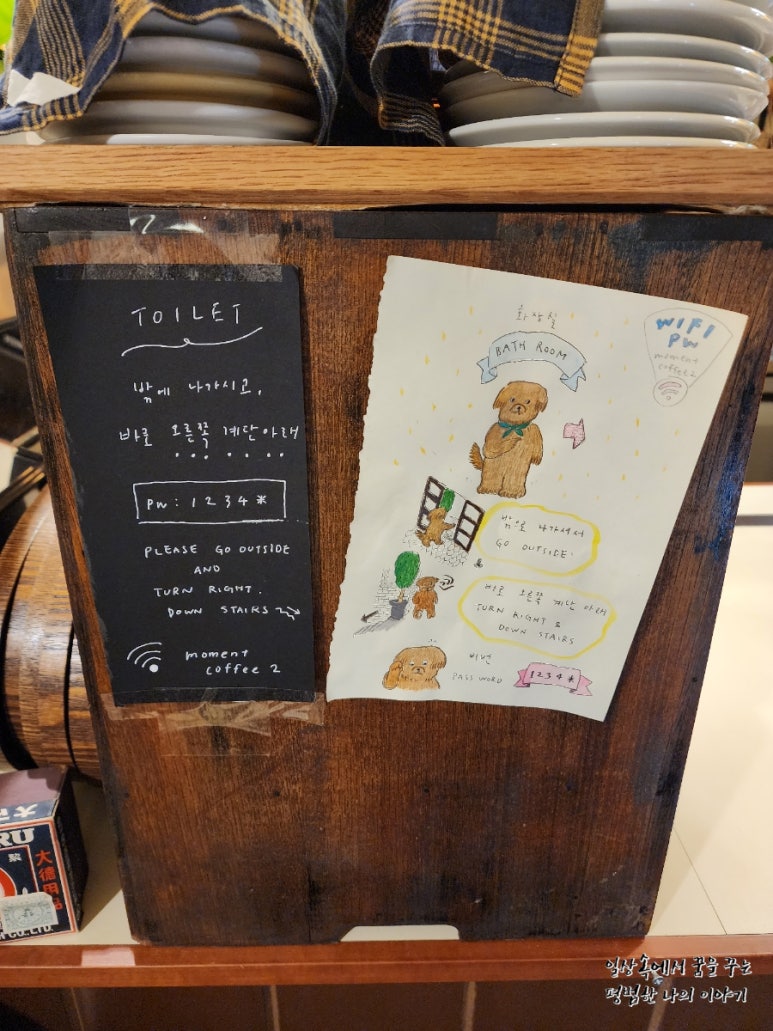 TOILET
밖에 나가시고,
바로 오른쪽 계단아래
PW : 1 2 3 4 *
PLEASE GO OUTSIDE
AND
TURN RIGHT.
DOWN STAIRS
moment
coffee 2
화장실
BATH ROOM
WIFI
PW
moment
coffee 2
밖으로 나가셔서
GO OUTSIDE.
바로 오른쪽 계단 아래
TURN RIGHT &
DOWN STAIRS
비번
PASS WORD
1234*
RU
大德用品
CO.LTD.
일상속에서 꿈을 꾸는
평범한 나의 이야기